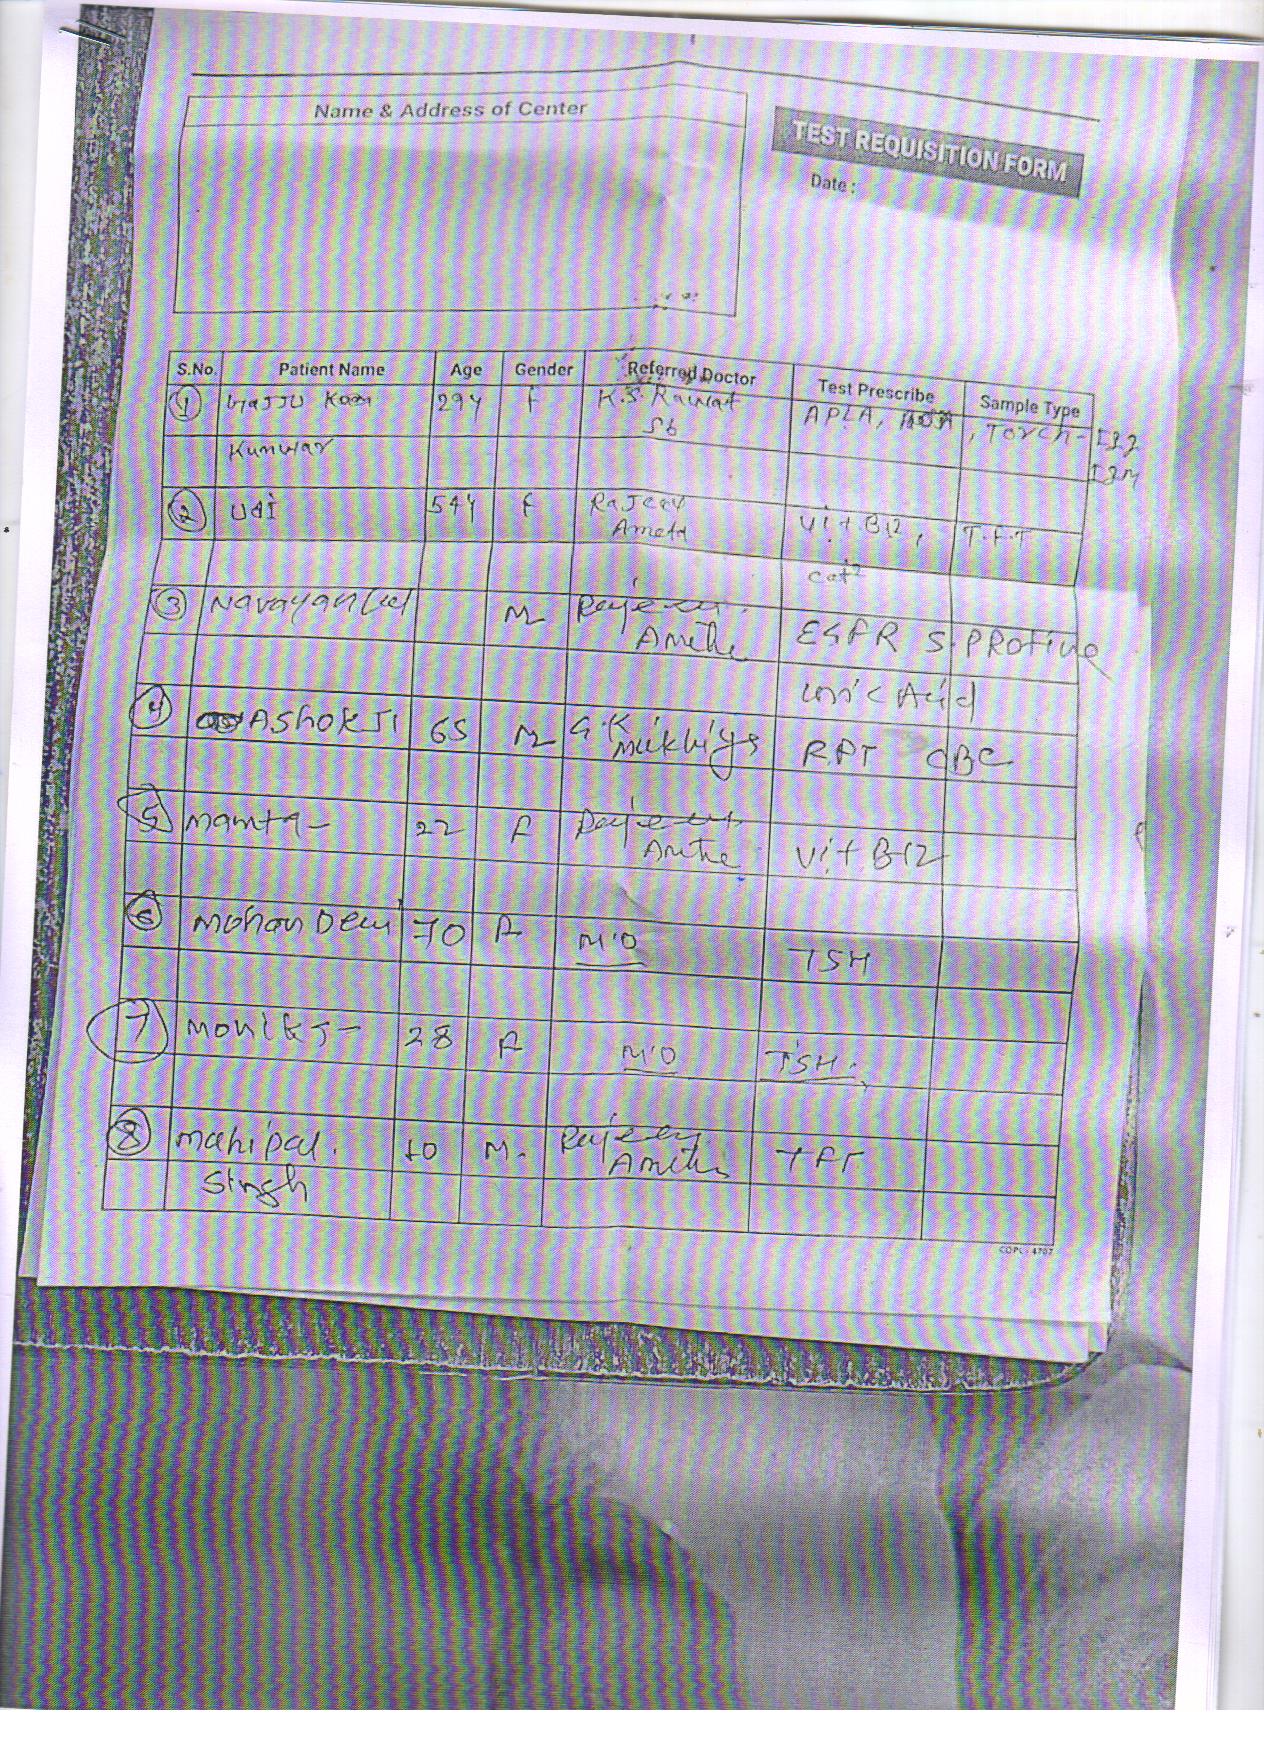 Name & Address of Center
TEST REQUISITION FORM
Date :
S.No. Patient Name Age Gender Referred Doctor Test Prescribe Sample Type
1 Gajju 29Y F K.S. Rawat APLA, , Torch - IgG
Kunwar Sb IgM
2 Udi 54Y F Rajeev Vit B12, T.F.T
Ameta
3 Narayan Lal M Rajeev ESR S. PROTINE
Ametha
Uric Acid
4 Ashok Ji 65 M G.K RFT CBC
5 Mamta - 22 F Rajeev Vit B12
Ametha
6 Mohan Devi 70 F M'O TSH
7 Monika - 28 F M'O TSH.
8 Mahipal. M. Rajeev TFT
Singh Ametha
COPL - 4707